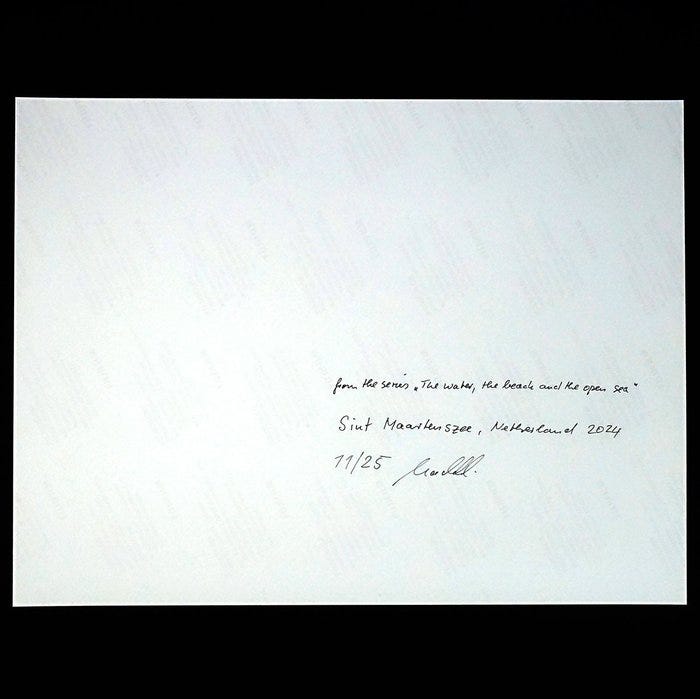 from the series „The water, the beach and the open sea“
Sint Maartenszee, Netherland 2024
11/25